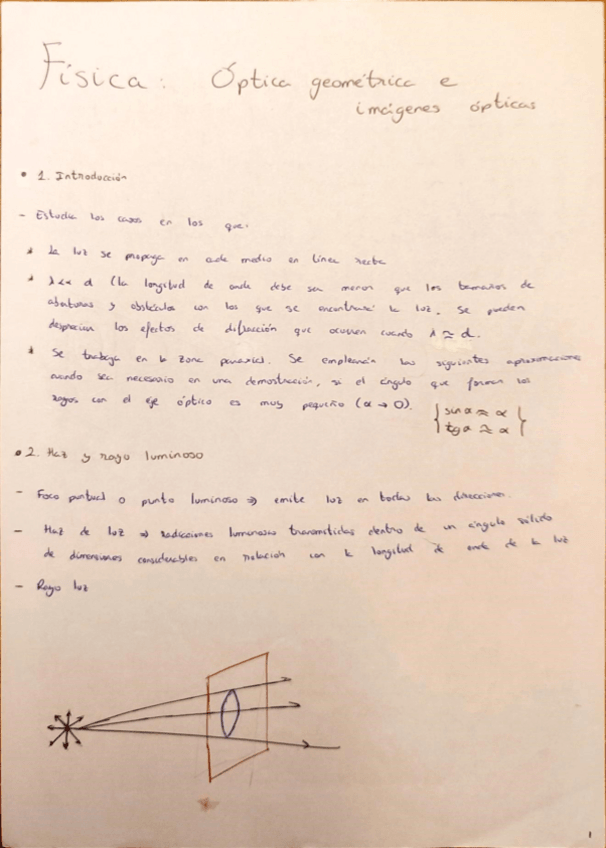 Física: Óptica geométrica e
imágenes ópticas
• 1. Introducción
- Estudia los casos en los que:
* La luz se propaga en cada medio en línea recta
* λ << d (la longitud de onda debe ser menor que los tamaños de
aberturas y obstáculos con los que se encontrará la luz. Se pueden
despreciar los efectos de difracción que ocurren cuando λ ≈ d.
* Se trabaja en la zona paraxial. Se emplearán las siguientes aproximaciones
cuando sea necesario en una demostración, si el ángulo que forman los
rayos con el eje óptico es muy pequeño (α → 0). { sin α ≈ α }
{ tg α ≈ α }
• 2. Haz y rayo luminoso
- Foco puntual o punto luminoso ⇒ emite luz en todas las direcciones.
- Haz de luz ⇒ radiaciones luminosas transmitidas dentro de un ángulo sólido
de dimensiones considerables en relación con la longitud de onda de la luz
- Rayo luz
1